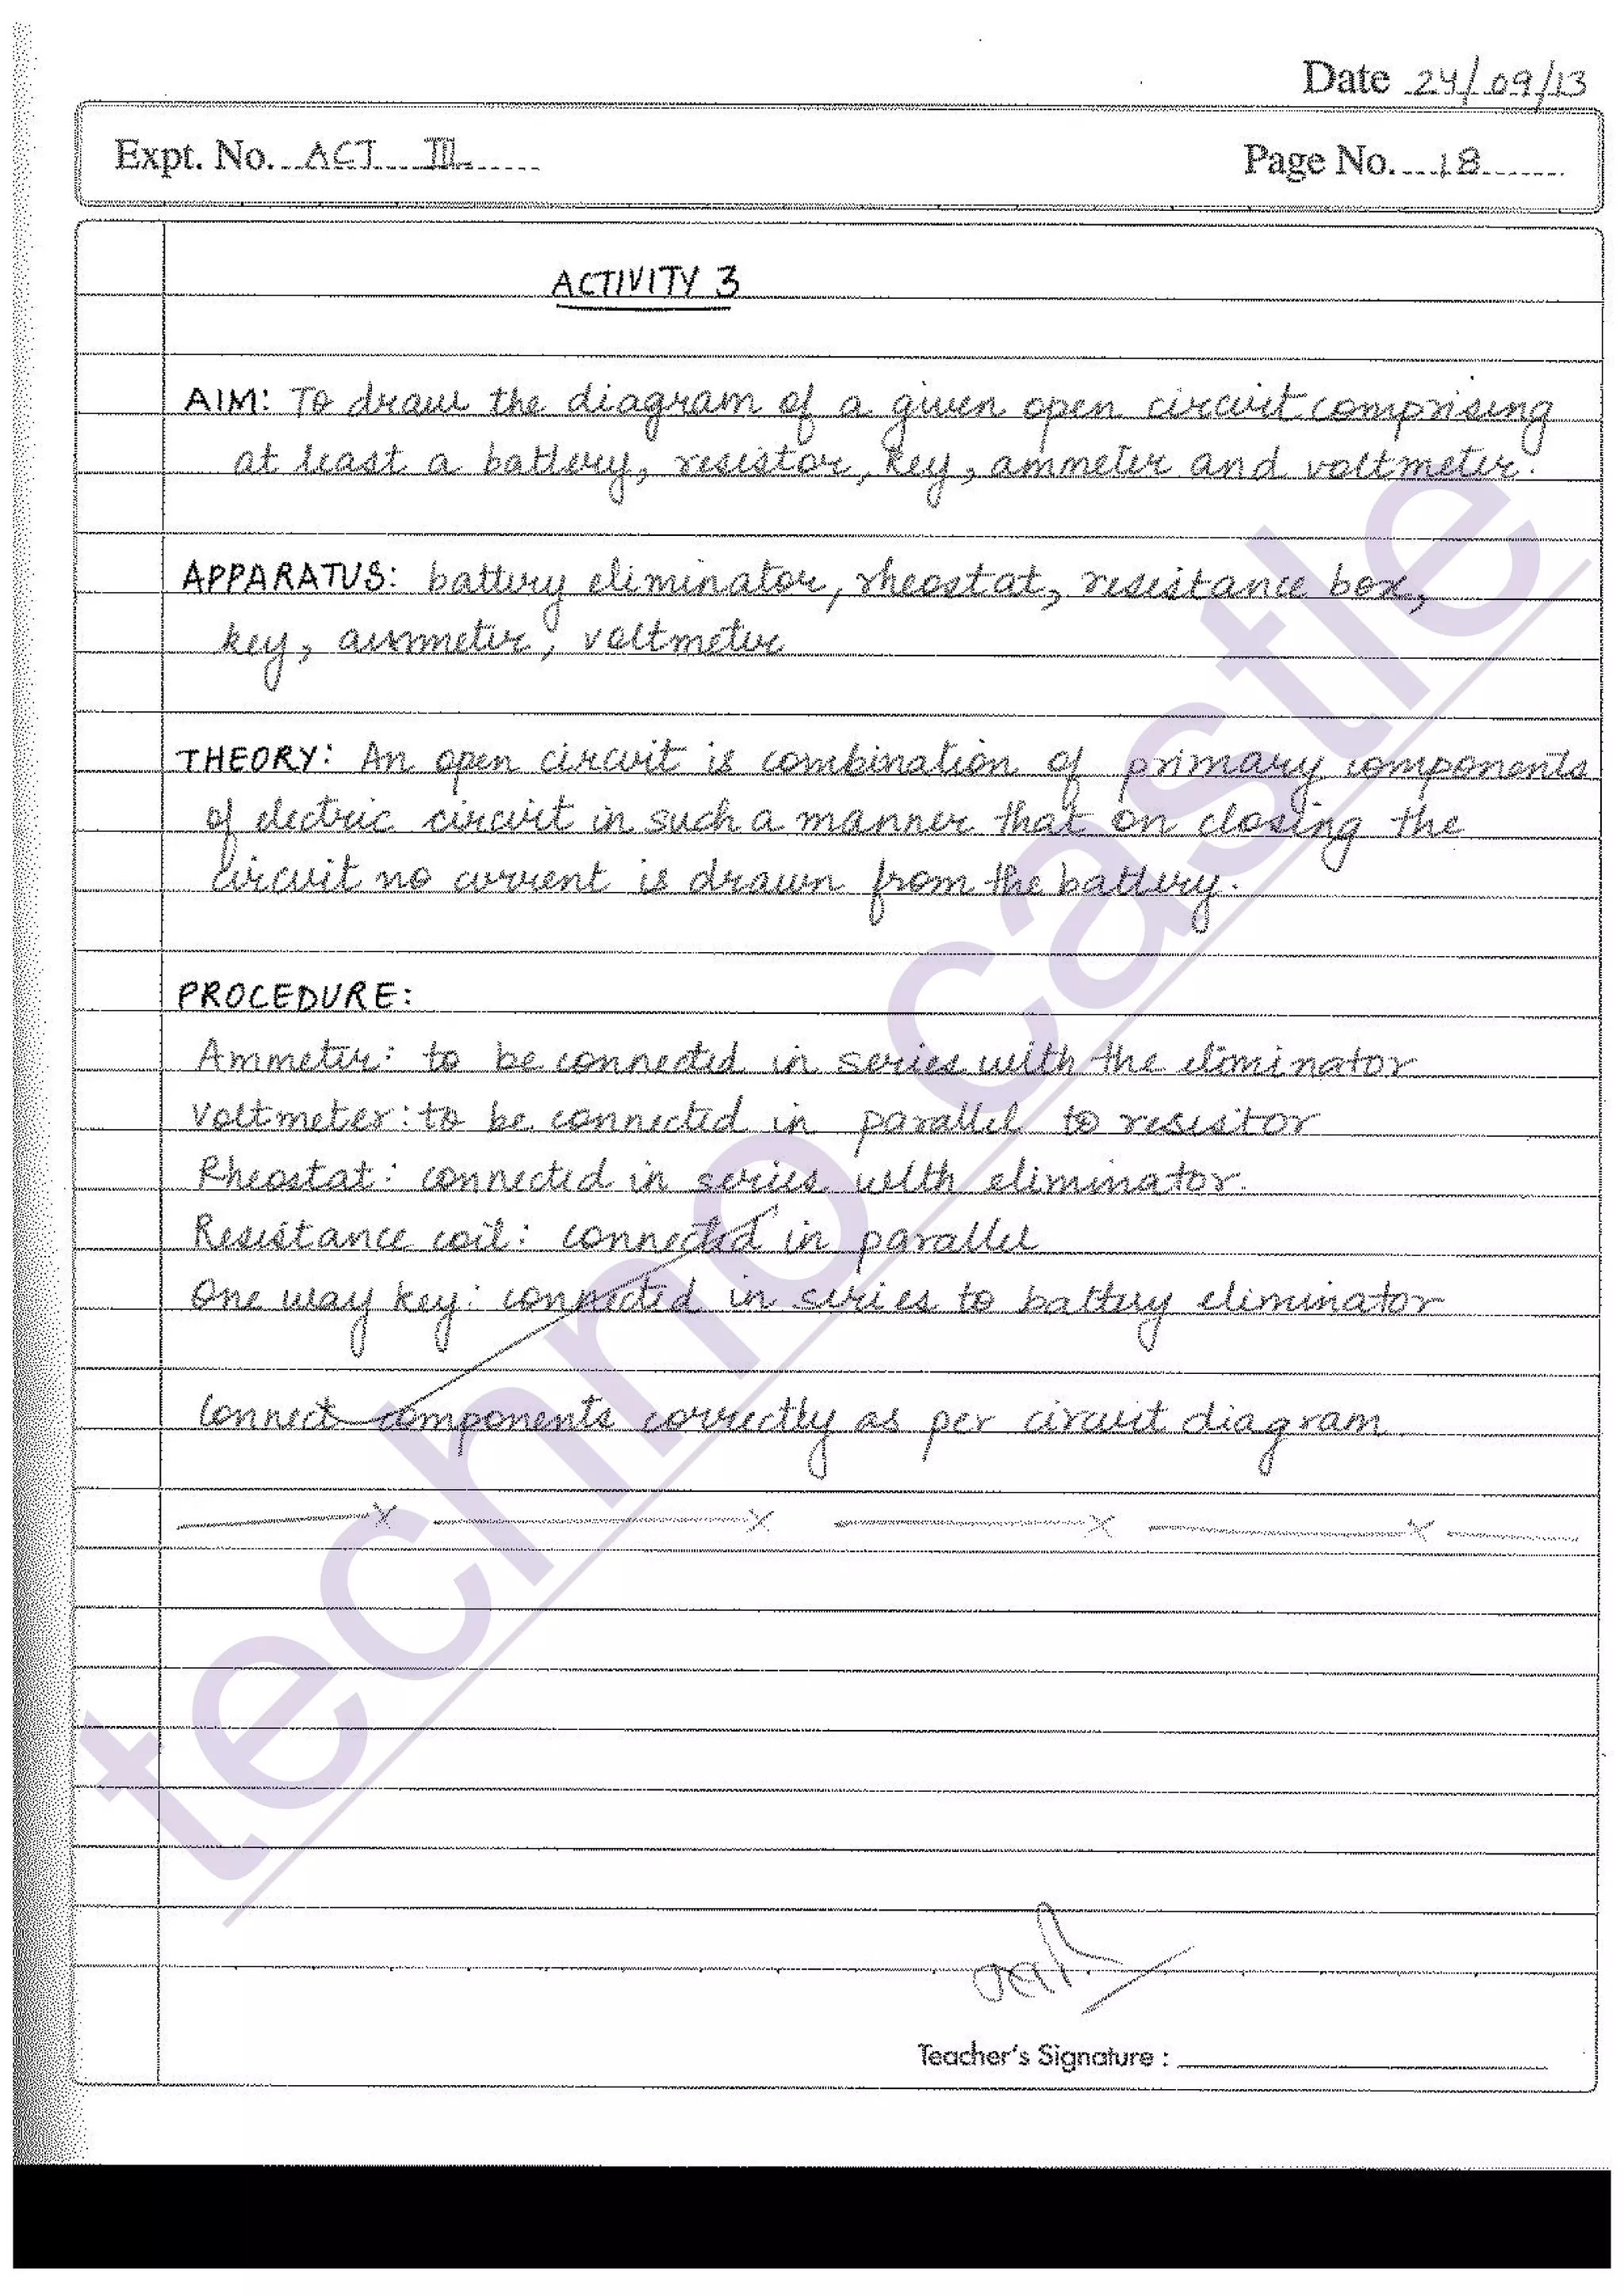 Date 24/09/13
Expt. No. ACT III
Page No. 18
ACTIVITY 3
AIM: To draw the diagram of a given open circuit comprising
at least a battery, resistor, key, ammeter and voltmeter.
APPARATUS: battery eliminator, rheostat, resistance box,
key, ammeter, voltmeter
THEORY: An open circuit is combination of primary components
of electric circuit in such a manner that on closing the
circuit no current is drawn from the battery.
PROCEDURE:
Ammeter: to be connected in series with the eliminator
Voltmeter: to be connected in parallel to resistor
Rheostat: connected in series with eliminator.
Resistance coil: connected in parallel
One way key: connected in series to battery eliminator
Connect components correctly as per circuit diagram
Teacher's Signature :
techno castle